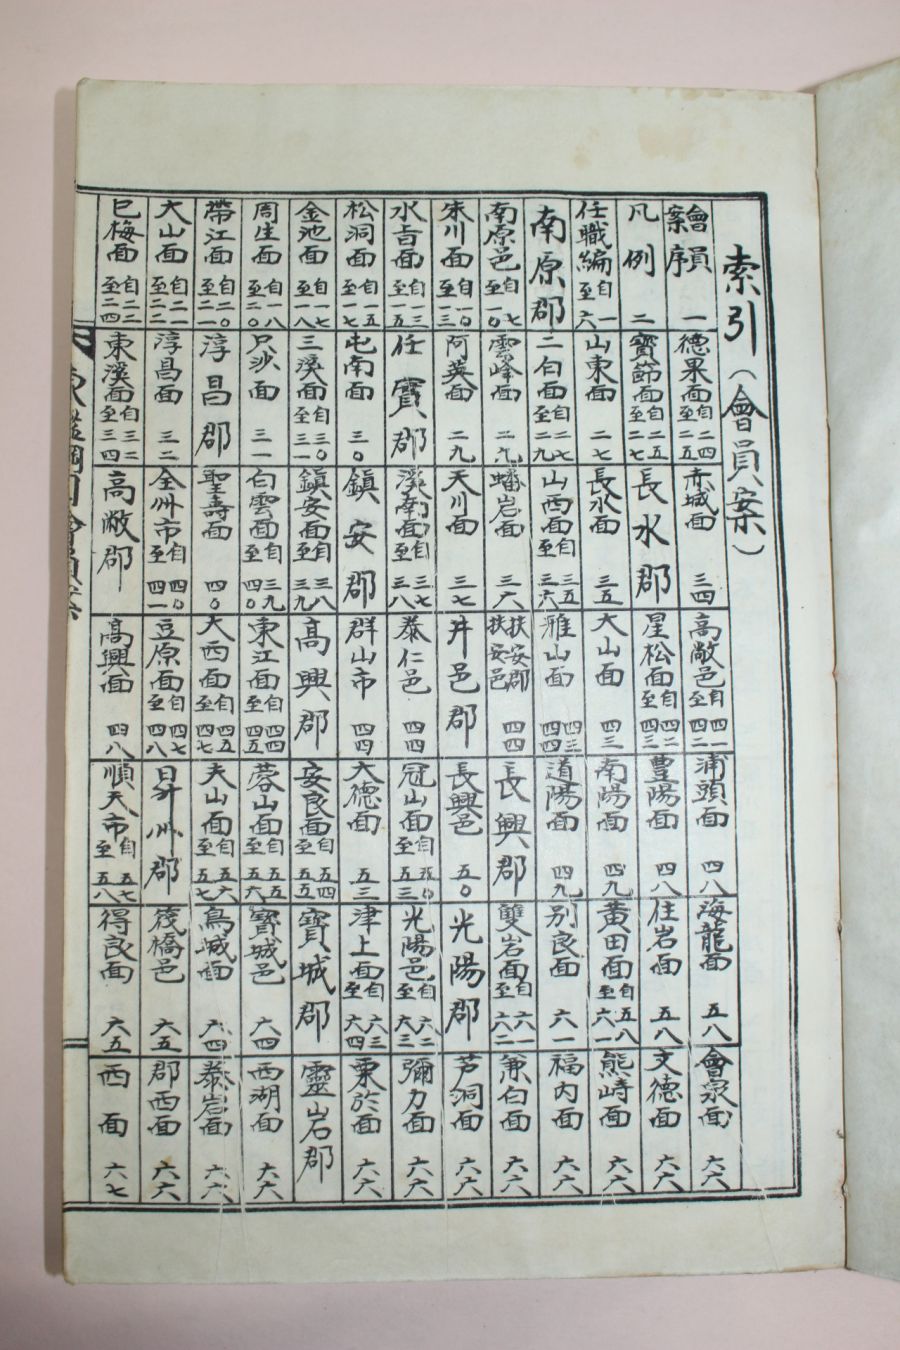 索引（會員案）
會員案序 一
凡例 二
任職編 自一至六
南原郡
南原邑 自七至一〇
朱川面 自一〇至一三
水旨面 自一三至一五
松洞面 自一五至一七
金池面 自一七至一八
周生面 自一八至二〇
帶江面 自二〇至二一
大山面 自二一至二二
巳梅面 自二二至二四
德果面 自二四至二五
寶節面 自二五至二七
山東面 二七
二白面 自二七至二九
雲峰面 二九
阿英面 二九
任實郡
屯南面 三〇
三溪面 自三〇至三一
只沙面 三一
淳昌郡
淳昌面 三二
東溪面 自三二至三四
赤城面 三四
長水郡
長水面 三五
山西面 自三五至三六
蟠岩面 三六
天川面 三七
溪南面 自三七至三八
鎭安郡
鎭安面 自三八至三九
白雲面 自三九至四〇
聖壽面 四〇
全州市 自四〇至四一
高敞郡
高敞邑 自四一至四二
星松面 自四二至四三
大山面 四三
雅山面 四三 四四
扶安郡 扶安邑 四四
井邑郡
泰仁邑 四四
群山市 四四
高興郡
東江面 自四四至四五
大西面 自四五至四七
豆原面 自四七至四八
高興面 四八
浦頭面 四八
豊陽面 四八
南陽面 四九
道陽面 四九
長興郡
長興邑 五〇
冠山面 自五〇至五三
大德面 五三
安良面 自五四至五五
蓉山面 自五五至五六
夫山面 自五六至五七
昇州郡
順天市 自五七至五八
海龍面 五八
住岩面 五八
黃田面 自五八至六一
別良面 六一
雙岩面 自六一至六二
光陽郡
光陽邑 自六二至六三
津上面 自六三至六四
寶城郡
寶城邑 六四
鳥城面 六四
筏橋邑 六五
得良面 六五
會泉面 六六
文德面 六六
熊峙面 六六
福內面 六六
兼白面 六六
芦洞面 六六
彌力面 六六
栗於面 六六
靈岩郡
西湖面 六六
郡西面 六六
西面 六七